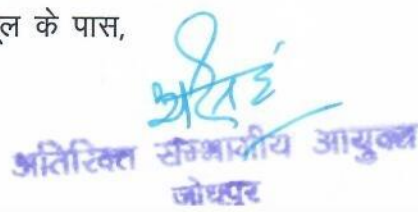 ल के पास,
अतिरिक्त संम्भागीय आयुक्त
जोधपुर